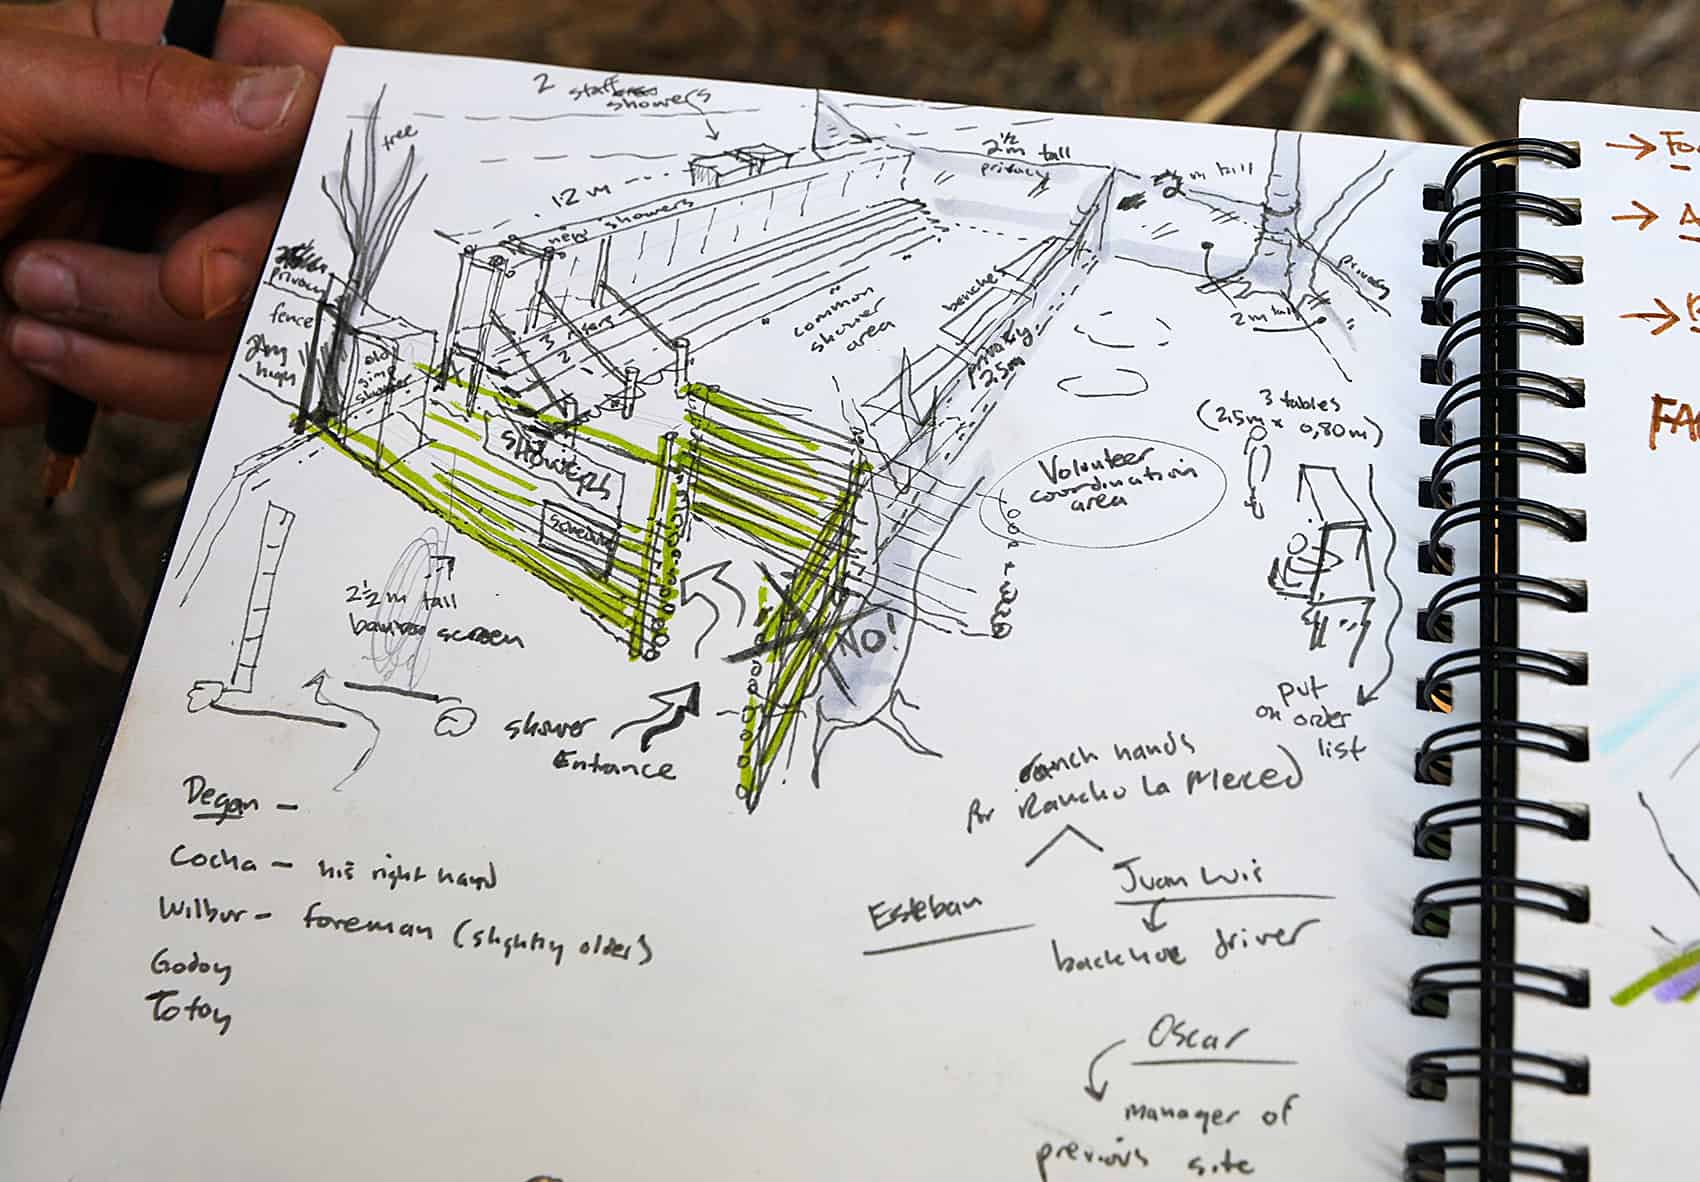 2 staff
showers
tree
12 m
new showers
2½ m tall
privacy
2 m tall
privacy
2m tall
privacy
fence
high
old
shower
common
shower
area
benches
privacy
2.5m
3 tables
(2.5m x 0,80m)
Volunteer
coordination
area
showers
schedule
2½ m tall
bamboo screen
NO!
shower
Entrance
put
on order
list
ranch hands
for Rancho La Merced
Esteban
Juan Luis
backhoe driver
Oscar
manager of
previous site
Degan -
Cocha - his right hand
Wilbur - foreman (slightly older)
Godoy
Totoy